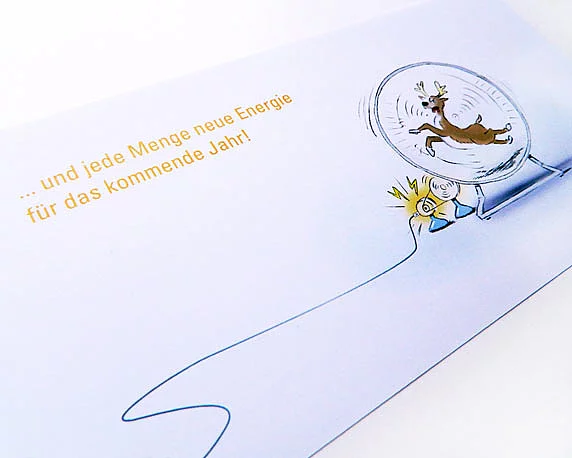 ... und jede Menge neue Energie
für das kommende Jahr!